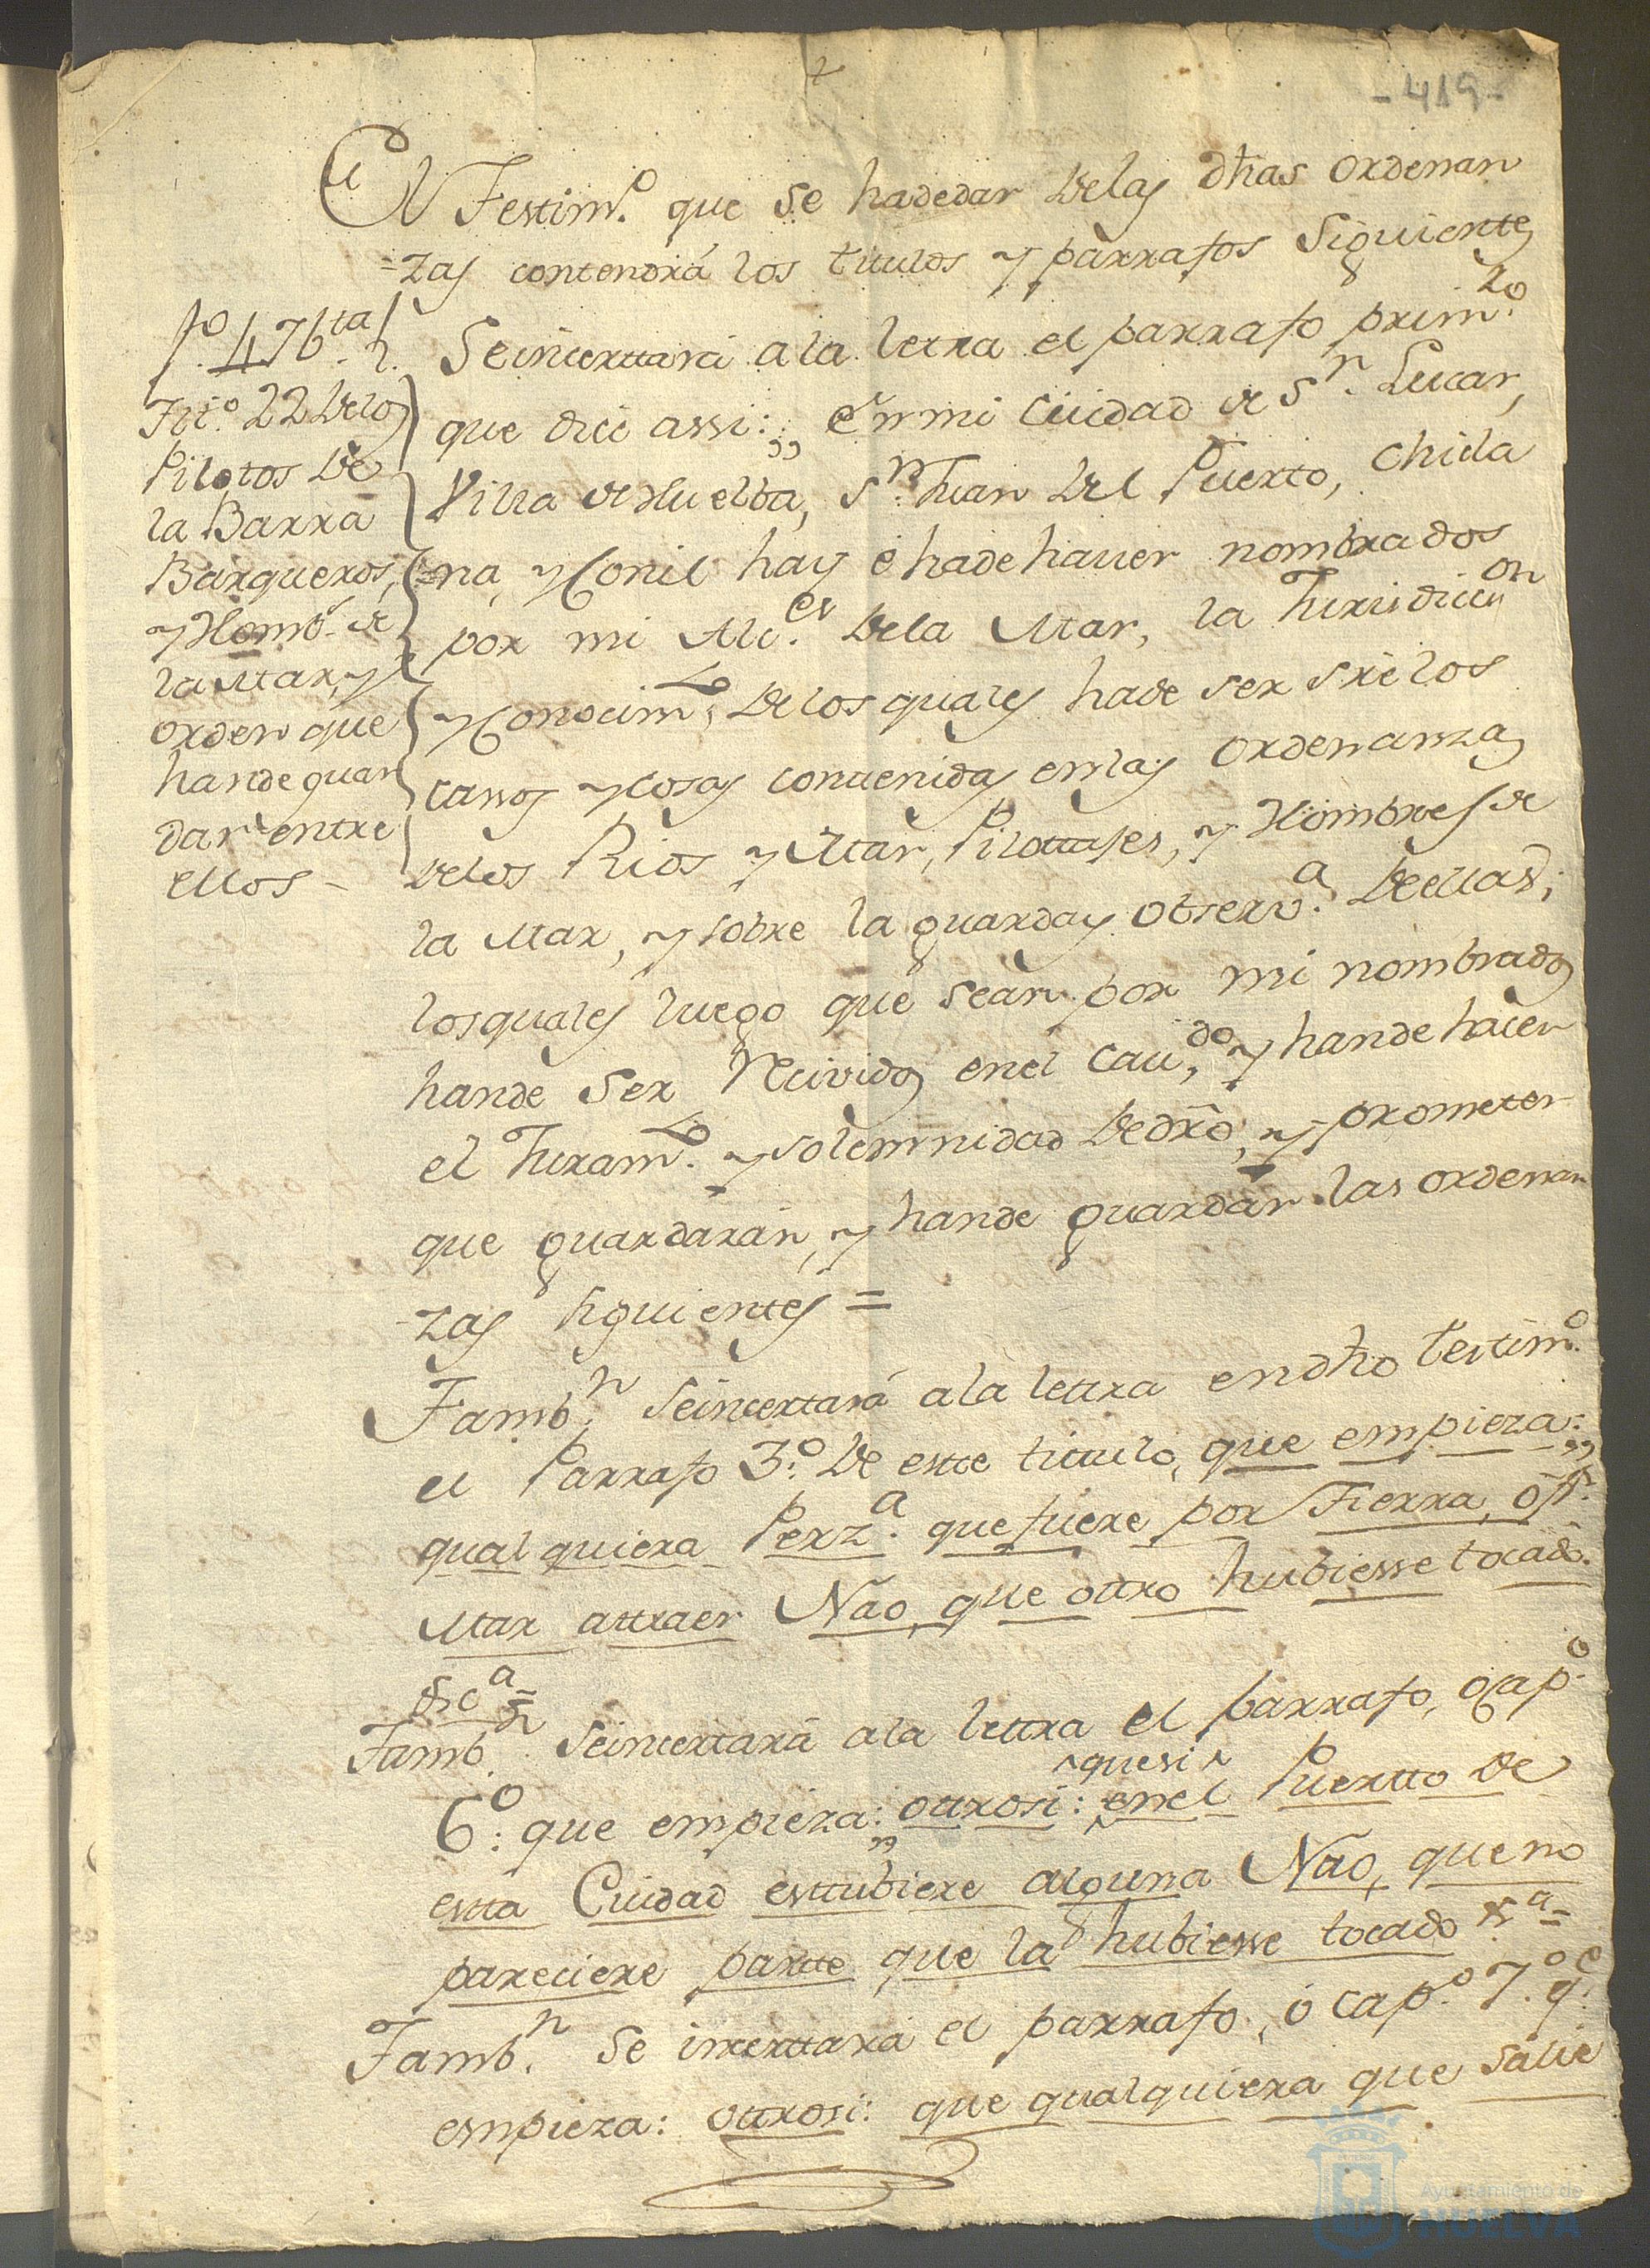 -419-
El Testim.o que se hadedar Delas dhas ordenan
=zas contendrá los titulos y parrafos Siguientes
fo. 476 ta.
Tit.o 22 Delos
Pilotos De
la Barra
Barqueros,
y Homb.s de
la Mar, y
orden que
hande guar
dar entre
ellos -
Seincerttará a la letra el parrafo prim.ro
que dice assi:,, En mi Ciudad de Sn. Lucar,
Villa de Huelba, Sn. Juan Del Puerto, Chicla
=na, y Conil hay é hade hauer nombrados
por mi Alc.es Dela Mar, la Jurisdicion
y Conocim.to Delos quales hade ser sre los
cassos y cosas contenidas enlas ordenanzas
Delos Rios y Mar, Pilottajes, y Hombres de
la Mar, y sobre la guarda y observ.a De ellas;
losquales luego que sean por mi nombrados
hande ser Recividos enel Cau.do y hande hacer
el Juram.to y solemnidad Dedro, y prometer
que guardarán, y hande guardar las ordenan
-zas siguientes =
Tamb.n Seincertará ala lettra endho testim.o
el Parrafo 3.o De este titulo, que empieza:,,
qualquiera Perz.a que fuere por Tierra, ó pr.
Mar attraer Nao, que ottro hubiesse tocado.
&c.a =
Tamb.n Seincertará ala lettra el parrafo, ó cap.o
6.o: que empieza:,, ottrosi: que si enel Puertto de
estta Ciudad esttubiere alguna Nao, que no
pareciere partte que la hubiesse tocado &.a=
Tamb.n Se incerttará el parrafo, ó cap.o 7.o q.e
empieza: ottrosi: que qualquiera que salie
Ayuntamiento de
HUELVA